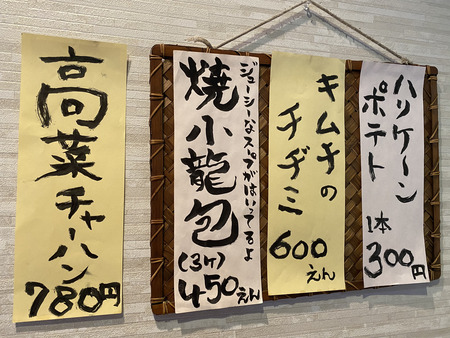 ハリケーン
ポテト
1本
300円
キムチの
チヂミ
600
えん
ジューシーなスープがはいってるよ
焼小龍包
(3ヶ)
450えん
高菜チャーハン
780円